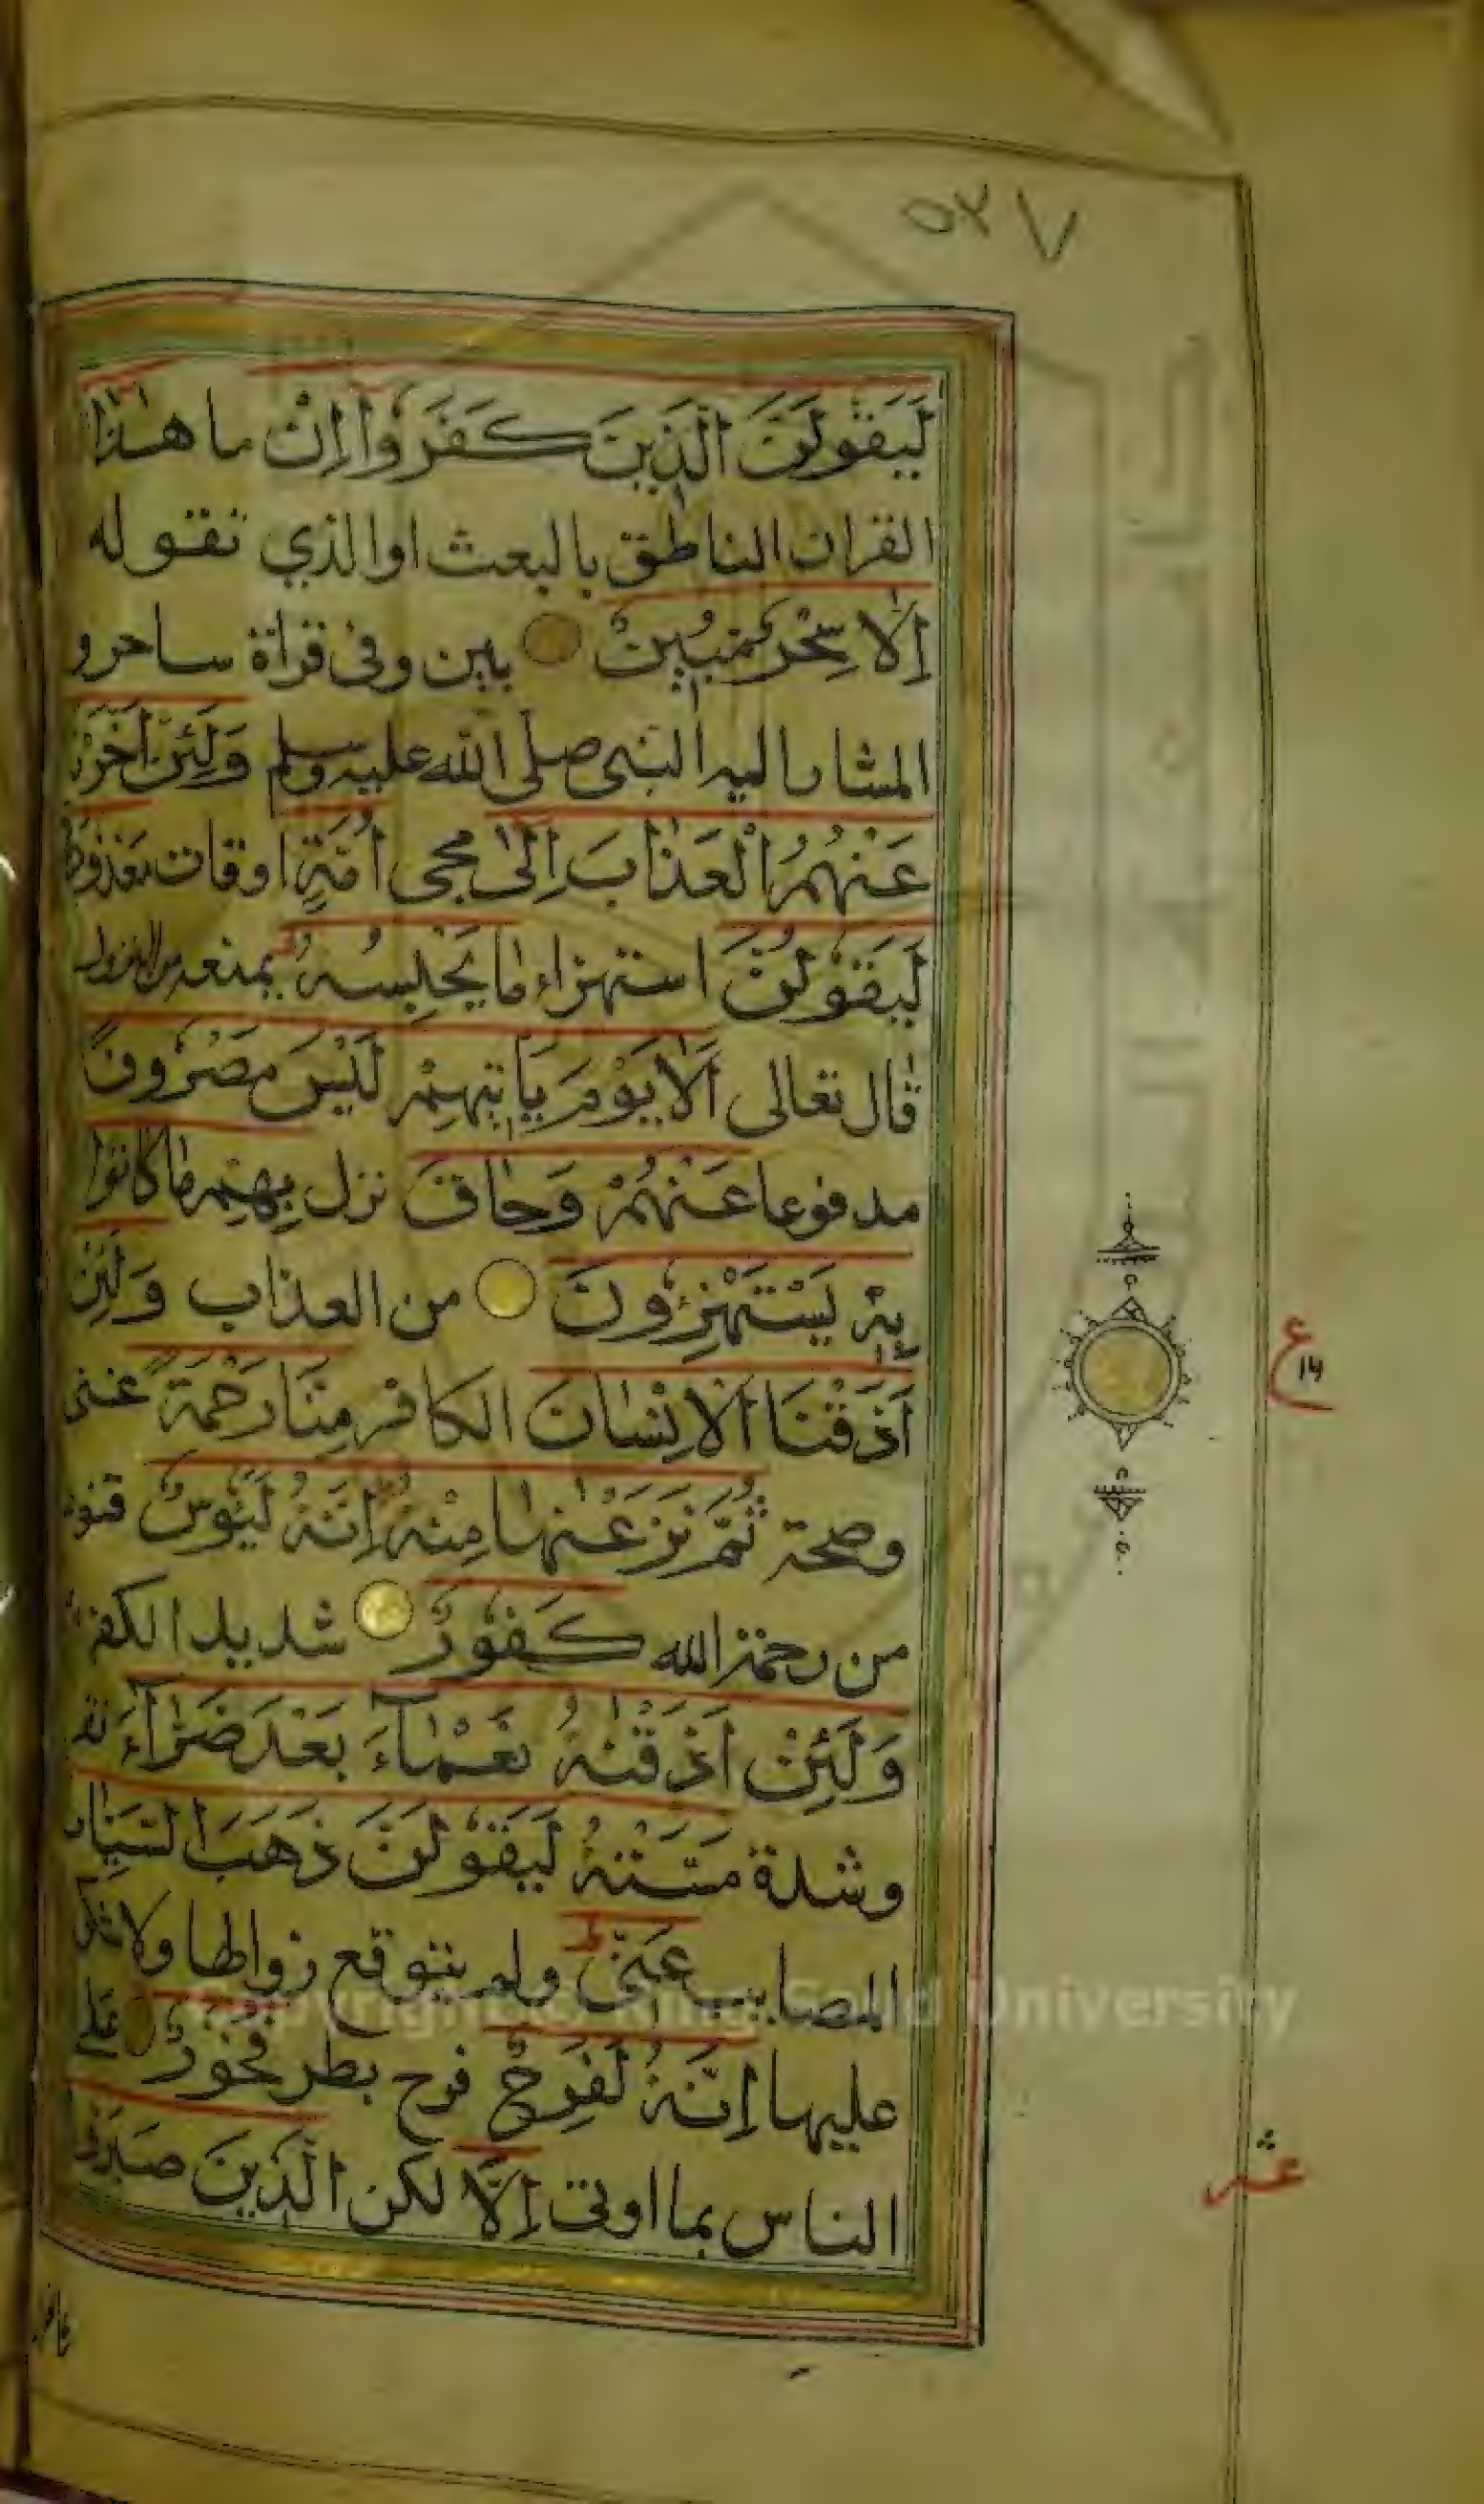 ٥٢٧
لَيَقُولَنَّ الَّذِينَ كَفَرُوا إِنْ ما هٰذَا
القران الناطق بالبعث او الذي تقوله
إِلَّا سِحْرٌ مُبِينٌ بين وفى قراة ساحر و
المشار اليه النبى صلى الله عليه وسلم وَلَئِنْ أَخَّرْنَا
عَنْهُمُ الْعَذَابَ إِلٰى مجى أُمَّةٍ اوقات مَعْدُودَةٍ
لَيَقُولُنَّ استهزاء مَا يَحْبِسُهُ يمنعه من النزول
قال تعالى أَلَا يَوْمَ يَأْتِيهِمْ لَيْسَ مَصْرُوفًا
مدفوعا عَنْهُمْ وَحَاقَ نزل بِهِمْ مَا كَانُوا
بِهِ يَسْتَهْزِءُونَ من العذاب وَلَئِنْ
أَذَقْنَا الْإِنْسَانَ الكافر مِنَّا رَحْمَةً غنى
وصحة ثُمَّ نَزَعْنٰهَا مِنْهُ إِنَّهُ لَيَئُوسٌ
من رحمة الله كَفُورٌ شديد الكفر
وَلَئِنْ أَذَقْنٰهُ نَعْمَاءَ بَعْدَ ضَرَّاءَ
وشدة مَسَّتْهُ لَيَقُولَنَّ ذَهَبَ السَّيِّاٰت
المصايب عَنِّي ولم يتوقع زوالها ولا
عليها إِنَّهُ لَفَرِحٌ فرح بطر فَخُورٌ على
الناس بما اوتى إِلَّا لكن الَّذِينَ صَبَرُوا
ع
عشر
Copyright © King Saud University